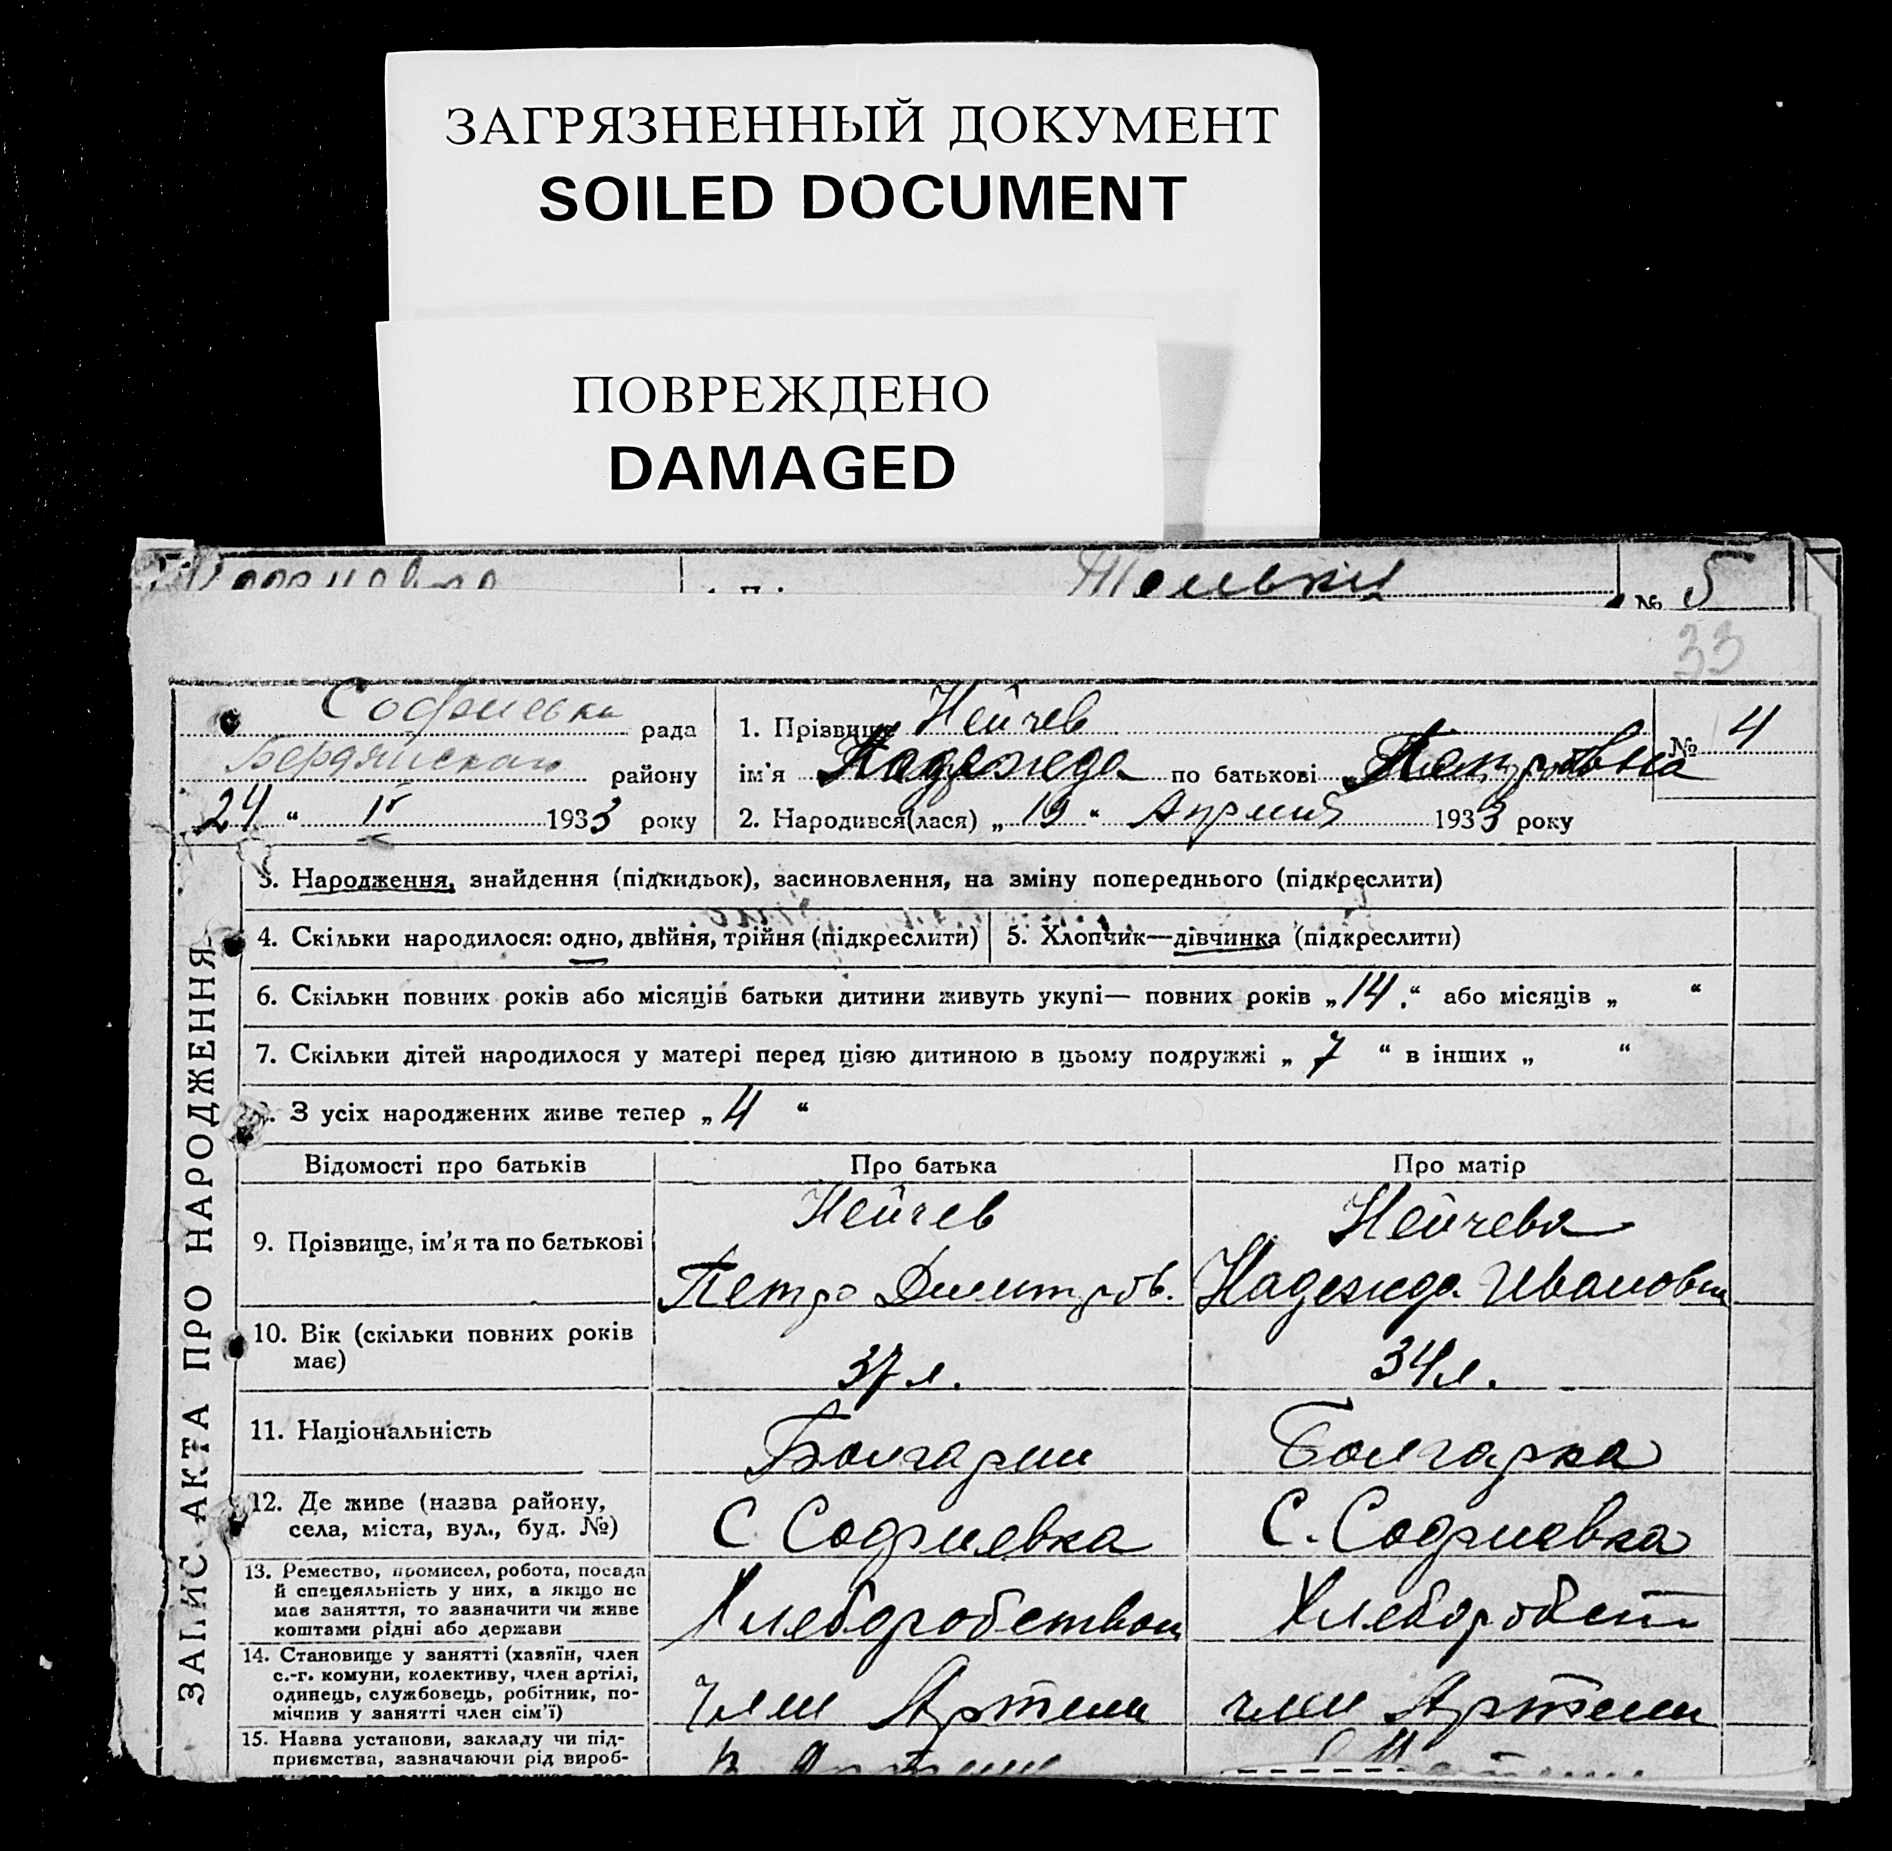 ЗАГРЯЗНЕННЫЙ ДОКУМЕНТ
SOILED DOCUMENT
ПОВРЕЖДЕНО
DAMAGED
№ 5
33
Софиевка рада
Бердянского району
24 “ IV 1933 року
1. Прізвище Нейчев
№ 4
ім’я Надежда по батькові Петровна
2. Народився(лася) „ 19 “ Апреля 1933 року
ЗАПИС АКТА ПРО НАРОДЖЕННЯ
3. Народження, знайдення (підкидьок), засиновлення, на зміну попереднього (підкреслити)
4. Скільки народилося: одно, двійня, трійня (підкреслити)
5. Хлопчик—дівчинка (підкреслити)
6. Скільки повних років або місяців батьки дитини живуть укупі— повних років „ 14 “ або місяців „ “
7. Скільки дітей народилося у матері перед цією дитиною в цьому подружжі „ 7 “ в інших „ “
8. З усіх народжених живе тепер „ 4 “
Відомості про батьків Про батька Про матір
9. Прізвище, ім’я та по батькові
Нейчев
Петро Димитров.
Нейчева
Надежда Ивановна
10. Вік (скільки повних років
має)
37 л.
34 л.
11. Національність
Болгарин
Болгарка
12. Де живе (назва району,
села, міста, вул., буд. №)
С Софиевка
С. Софиевка
13. Ремество, промисел, робота, посада
й спецеяльність у них, а якщо не
має заняття, то зазначити чи живе
коштами рідні або держави
Хлеборобством
Хлеборобств
14. Становище у занятті (хазяїн, член
с.-г. комуни, колективу, член артілі,
одинець, службовець, робітник, по-
мічнив у занятті член сім’ї)
член Артели
член Артели
15. Назва установи, закладу чи під-
приємства, зазначаючи рід вироб-